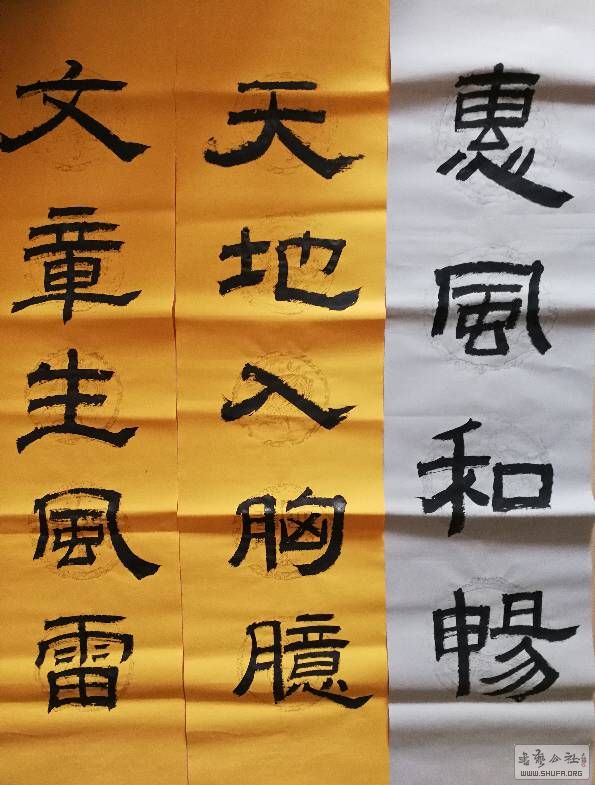 惠風和暢
天地入胸臆
文章生風雷
书艺公社
WWW.SHUFA.ORG